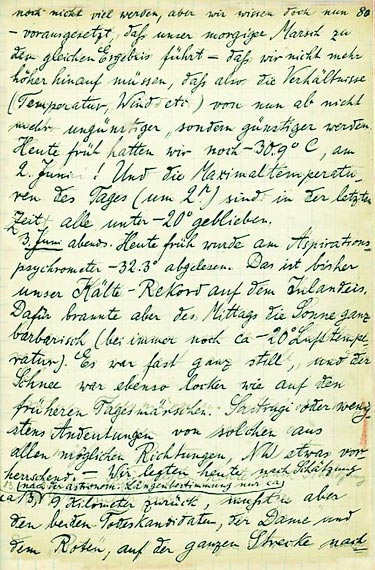 noch nicht viel werden, aber wir wissen doch nun 80
- vorausgesetzt, daß unser morgiger Marsch zu
dem gleichen Ergebnis führt - daß wir nicht mehr
höher hinauf müssen, daß also die Verhältnisse
(Temperatur, Wind etc.) von nun ab nicht
mehr ungünstiger, sondern günstiger werden.
Heute früh hatten wir noch -30.9° C, am
2. Juni! Und die Maximaltemperatu-
ren des Tages (um 2h) sind in der letzten
Zeit alle unter -20° geblieben.
3. Juni abends. Heute früh wurde am Aspirations-
psychrometer -32.3° abgelesen. Das ist bisher
unser Kälte-Rekord auf dem Inlandeis.
Dafür brannte aber des Mittags die Sonne ganz
barbarisch (bei immer noch ca -20° Lufttempe-
ratur). Es war fast ganz still, und der
Schnee war ebenso locker wie auf den
früheren Tagesmärschen. Sastrugi oder wenig-
stens Andeutungen von solchen aus
allen möglichen Richtungen, NW etwas vor-
herrschend. - Wir legten heute nach Schätzung
(nach der astronom. Längenbestimmung nur ca
ca 13, Kilometer zurück, mußten aber
den beiden Todeskandidaten, der Dame und
dem Roten, auf der ganzen Strecke nach-